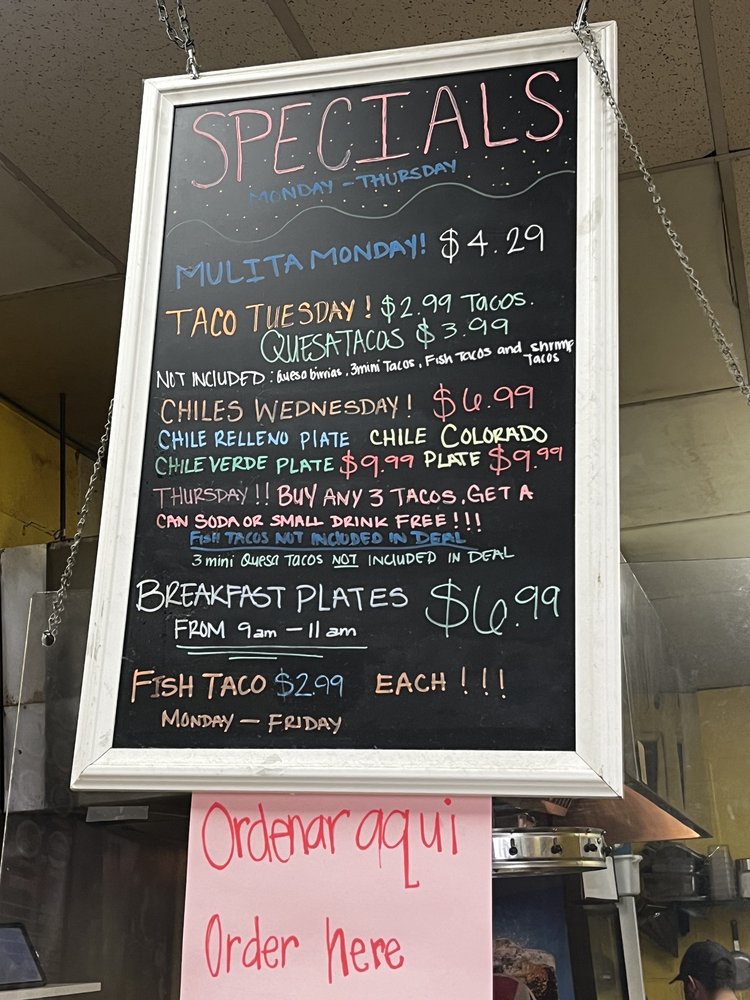 SPECIALS
MONDAY - THURSDAY
MULITA MONDAY! $4.29
TACO TUESDAY! $2.99 TACOS.
QUESATACOS $3.99
NOT INCLUDED: Quesabirrias, 3mini Tacos, Fish Tacos and shrimp Tacos
CHILES WEDNESDAY! $6.99
CHILE RELLENO PLATE CHILE COLORADO
CHILE VERDE PLATE $9.99 PLATE $9.99
THURSDAY!! BUY ANY 3 TACOS, GET A
CAN SODA OR SMALL DRINK FREE!!!
FISH TACOS NOT INCLUDED IN DEAL
3 mini Quesa Tacos NOT INCLUDED IN DEAL
BREAKFAST PLATES $6.99
FROM 9am - 11am
FISH TACO $2.99 EACH!!!
MONDAY - FRIDAY
Ordenar aqui
Order here